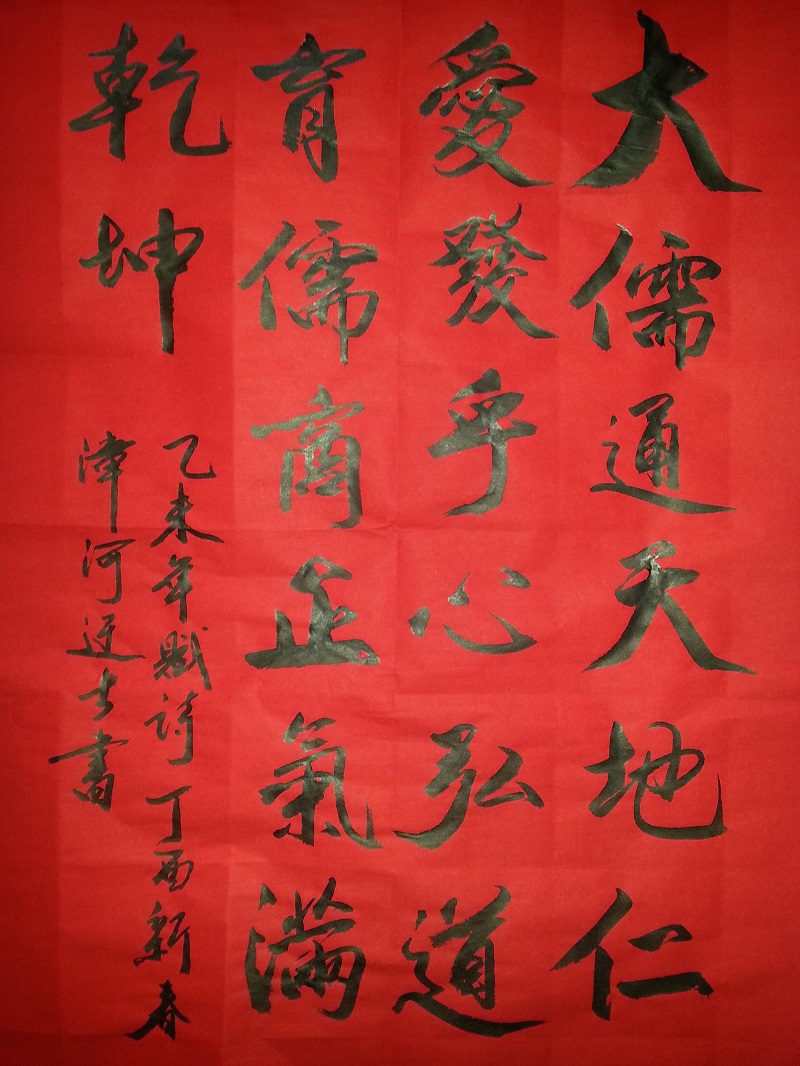 大儒通天地仁
愛發乎心弘道
育儒商正氣滿
乾坤
乙未年賦詩丁酉新春
津河逆士書